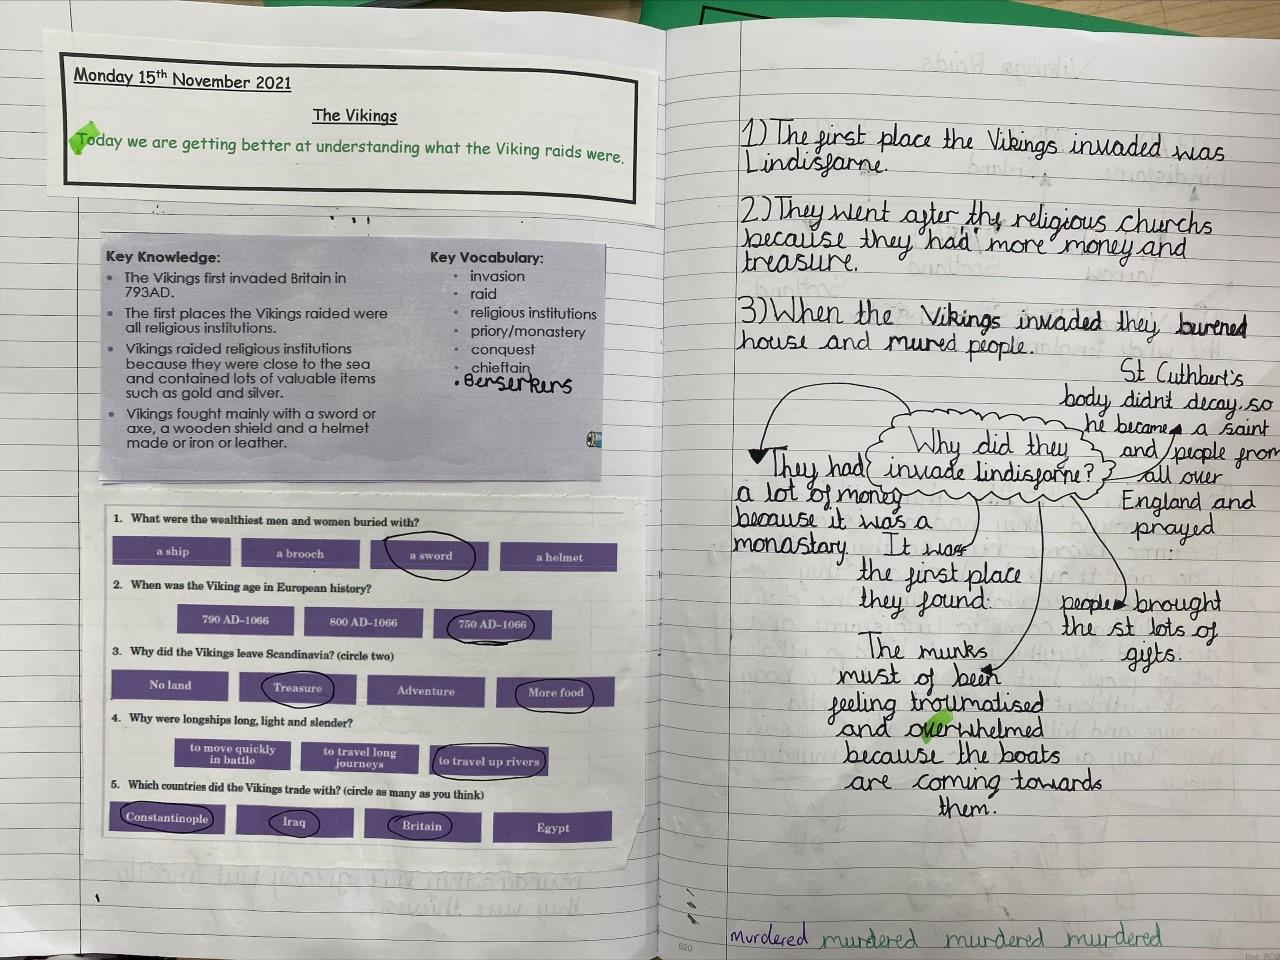 Monday 15th November 2021
The Vikings
Today we are getting better at understanding what the Viking raids were.
Key Knowledge:
• The Vikings first invaded Britain in
793AD.
• The first places the Vikings raided were
all religious institutions.
• Vikings raided religious institutions
because they were close to the sea
and contained lots of valuable items
such as gold and silver.
• Vikings fought mainly with a sword or
axe, a wooden shield and a helmet
made or iron or leather.
Key Vocabulary:
• invasion
• raid
• religious institutions
• priory/monastery
• conquest
• chieftain
• Berserkers
1. What were the wealthiest men and women buried with?
a ship a brooch a sword a helmet
2. When was the Viking age in European history?
790 AD–1066 800 AD–1066 750 AD–1066
3. Why did the Vikings leave Scandinavia? (circle two)
No land Treasure Adventure More food
4. Why were longships long, light and slender?
to move quickly
in battle
to travel long
journeys
to travel up rivers
5. Which countries did the Vikings trade with? (circle as many as you think)
Constantinople Iraq Britain Egypt
1) The first place the Vikings invaded was
Lindisfarne.
2) They went after the religious churchs
because they had more money and
treasure.
3) When the Vikings invaded they burened
house and mured people.
Why did they
invade lindisfarne?
St Cuthbert's
body didnt decay. so
he became a saint
and people from
all over
England and
prayed
They had
a lot of money
because it was a
monastary.
It was
the first place
they found.
people brought
the st lots of
gifts.
The munks
must of been
feeling troumatised
and overwhelmed
because the boats
are coming towards
them.
murdered murdered murdered murdered
620